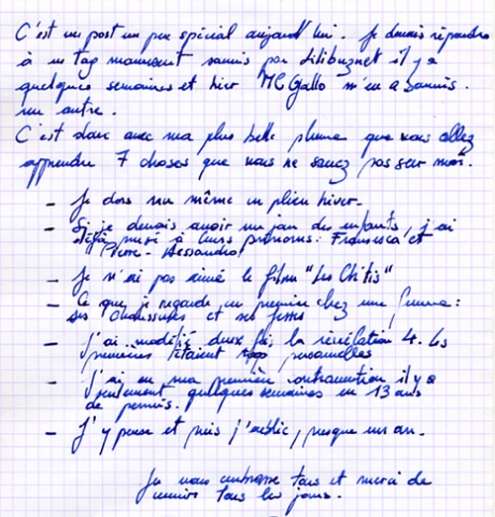 C'est un post un peu spécial aujourd'hui. Je devais répondre
à un tag manuscrit soumis par Lilibuznet il y a
quelques semaines et hier MC Gallo m'en a soumis
un autre.
C'est donc avec ma plus belle plume que vous allez
apprendre 7 choses que vous ne savez pas sur moi.
- Je dors nu même en plein hiver.
- Si je devais avoir un jour des enfants, j'ai
déjà pensé à leurs prénoms: Francesca et
Pierre-Alessandro!
- Je n'ai pas aimé le film "Les Ch'tis"
- Ce que je regarde en premier chez une femme:
ses chaussures et ses fesses
- J'ai modifié deux fois la révélation 4. Les
premières étaient trop personnelles
- J'ai eu ma première contravention il y a
seulement quelques semaines en 13 ans
de permis.
- J'y pense et puis j'oublie, presque un an.
Je vous embrasse tous et merci de
venir tous les jours.